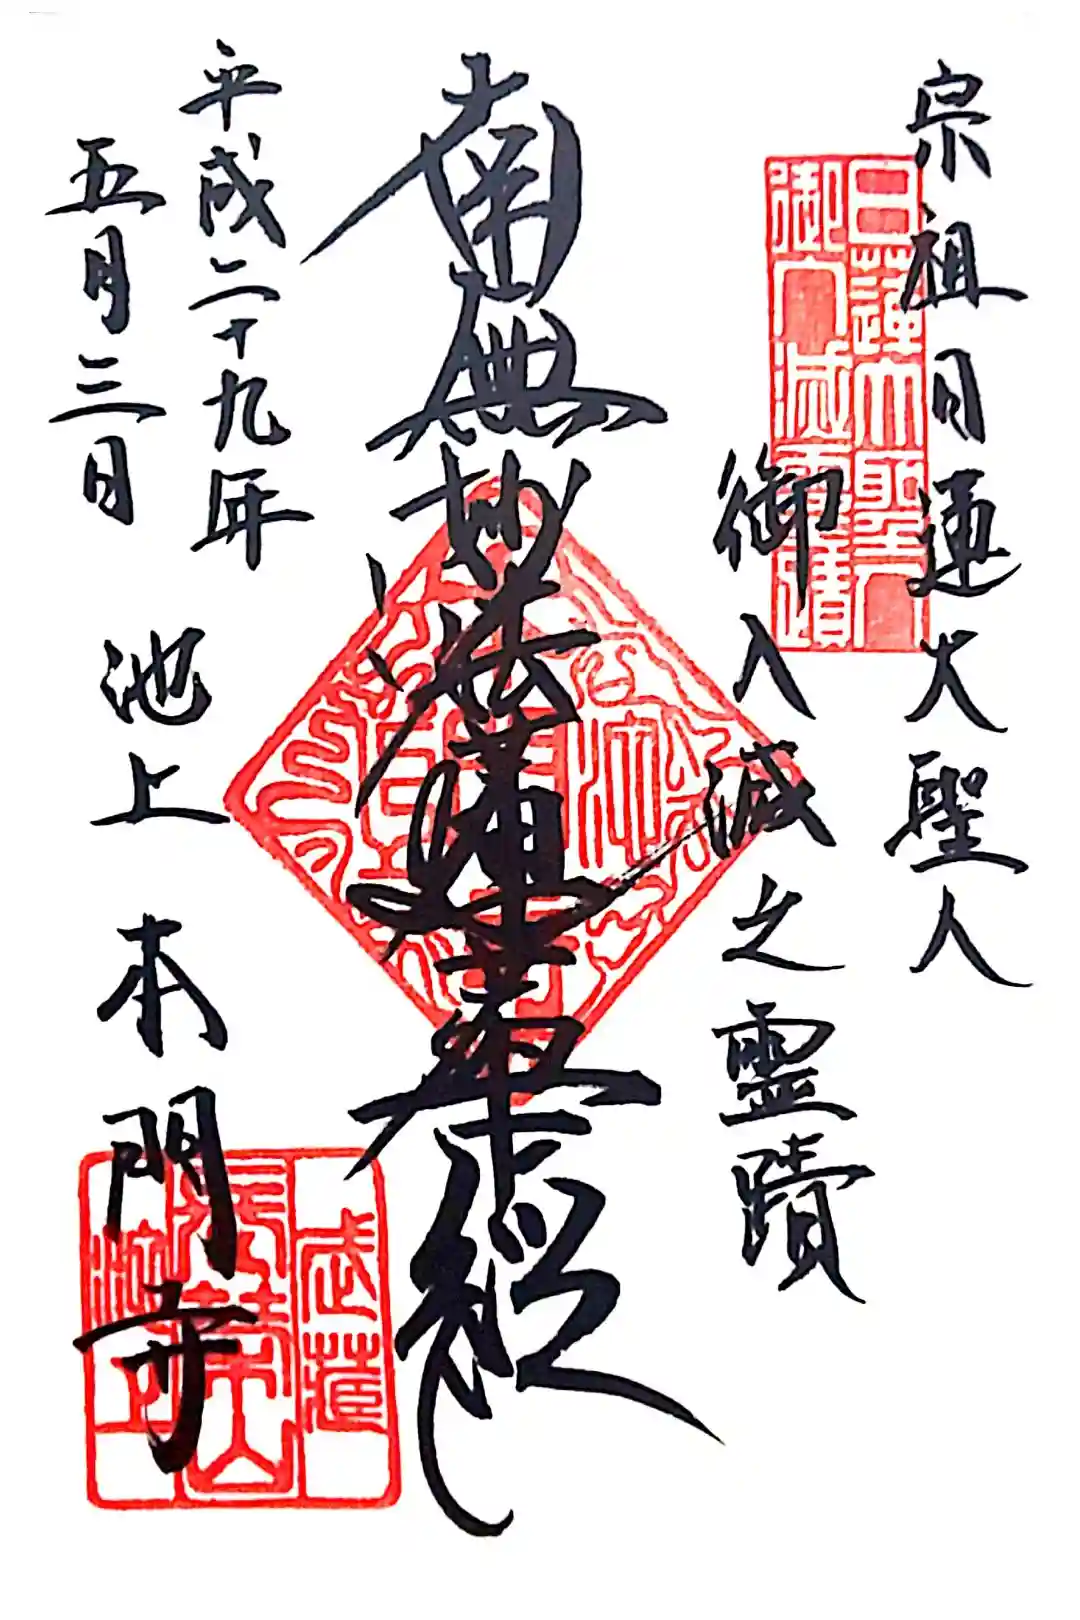 宗祖日蓮大聖人
御入滅之霊蹟
日蓮大聖人
御入滅霊蹟
南無妙法蓮華経
平成二十九年
五月三日
池上本門寺
武蔵
長榮山
池上